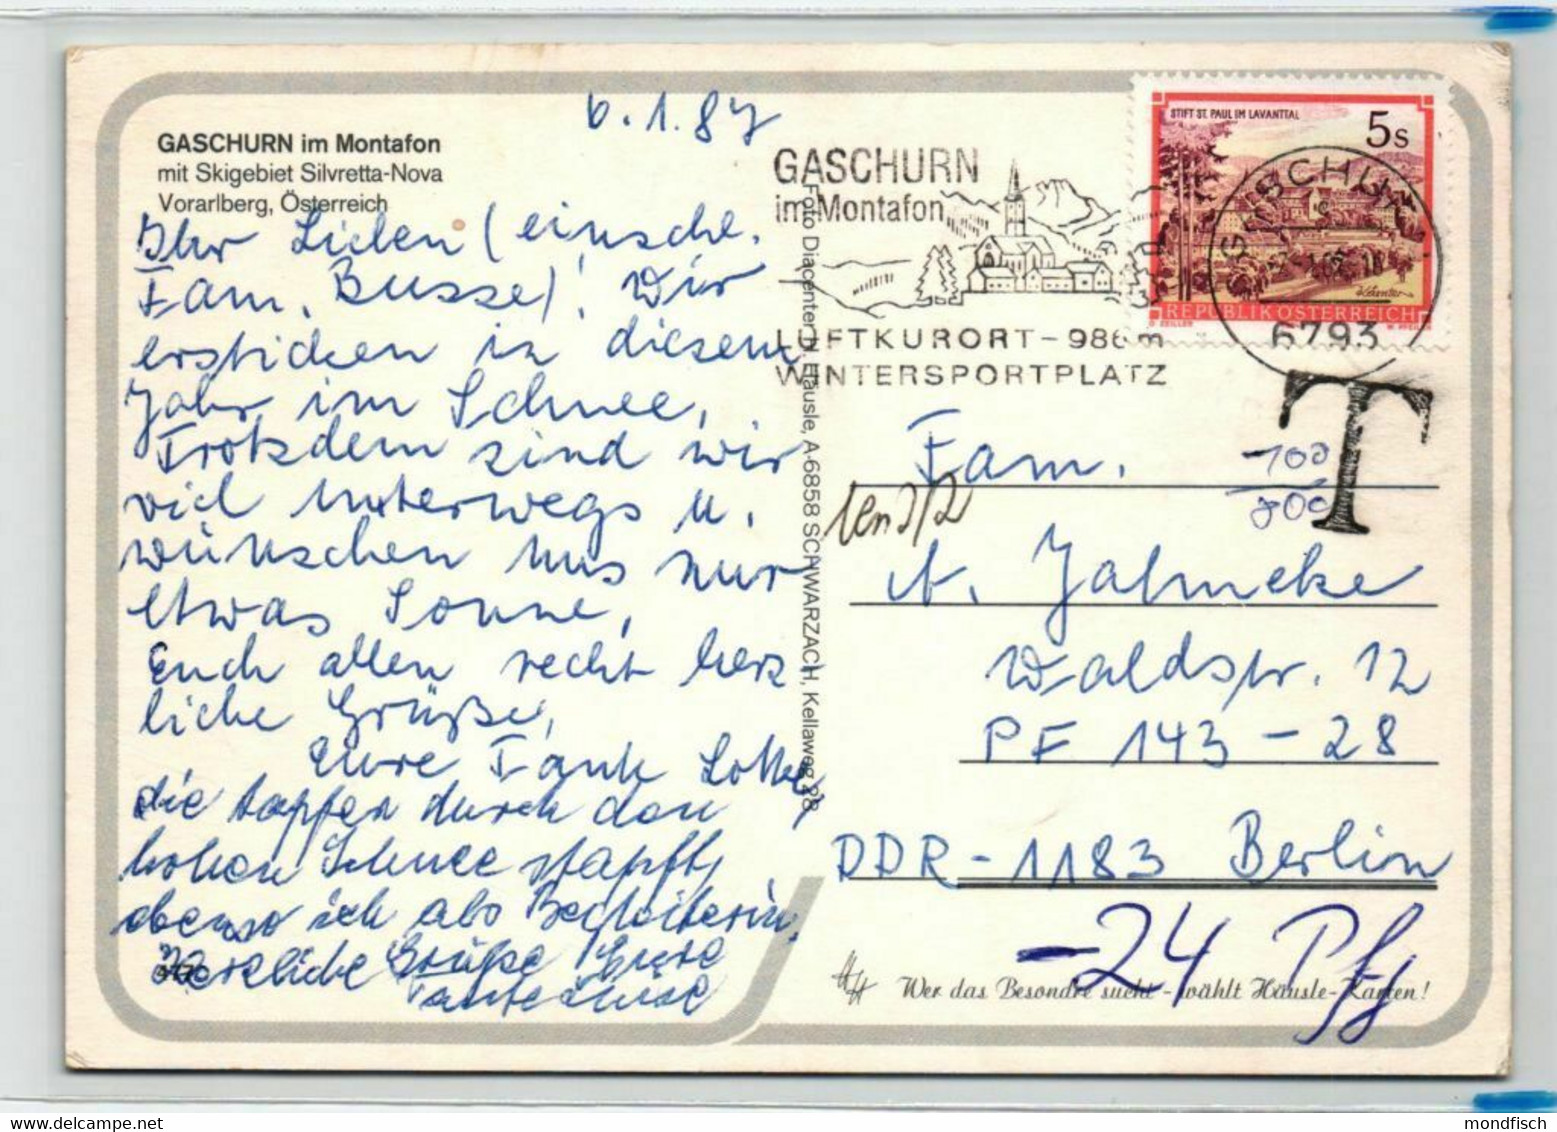 GASCHURN im Montafon
mit Skigebiet Silvretta-Nova
Vorarlberg, Österreich
6.1.87
Ihr Lieben (einschl.
Fam. Busse)! Wir
ersticken in diesem
Jahr im Schnee,
Trotzdem sind wir
viel unterwegs u.
wünschen uns nur
etwas Sonne,
Euch allen recht herz
liche Grüße,
Eure Tante Lotte,
die tapfer durch den
hohen Schnee stapft,
ebenso ich als Begleiterin,
Herzliche Grüße Eure
Tante
Foto Diacenter H. Häusle, A-6858 SCHWARZACH, Kellaweg 28
GASCHURN
im Montafon
LUFTKURORT - 986 m
WINTERSPORTPLATZ
STIFT ST. PAUL IM LAVANTTAL
5s
Kärnten
REPUBLIK ÖSTERREICH
ZEILLER
GASCHURN
6793
T
100
Fam.
A. Jahncke
Waldstr. 12
PF 143-28
DDR-1183 Berlin
-24 Pfg
Wer das Besondre sucht - wählt Häusle-Karten!
mondfisch